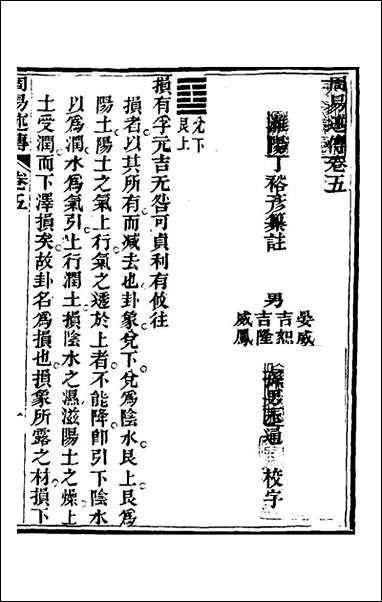 周易述傳卷五
濰陽丁裕彥纂註
男
晏威
吉恕
吉隆
威鳳
校字
兌下
艮上
損有孚元吉无咎可貞利有攸往
損者以其所有而減去也卦象兌下兌爲陰水艮上艮爲
陽土陽土之氣上行氣之透於上者不能降卽引下陰水
以爲潤水爲氣引上行潤土損陰水之濕滋陽土之燥上
土受潤而下澤損矣故卦名爲損也損象所露之材損下
周易述傳
卷五
一